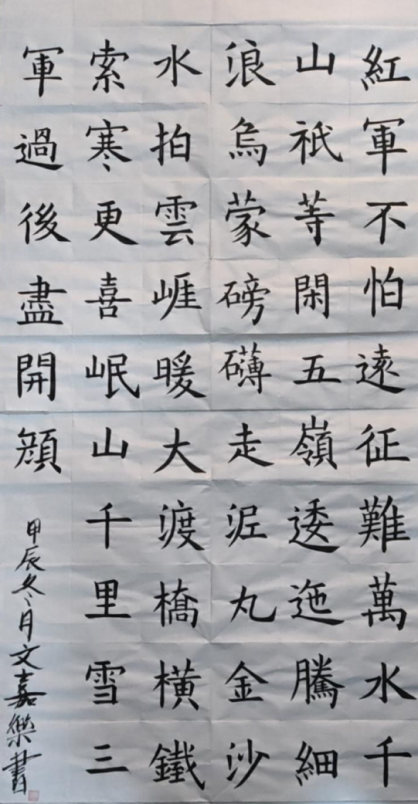 紅軍不怕遠征難萬水千
山祇等閑五嶺逶迤騰細
浪烏蒙磅礴走泥丸金沙
水拍雲崕暖大渡橋橫鐵
索寒更喜岷山千里雪三
軍過後盡開顔
甲辰冬月文嘉樂書